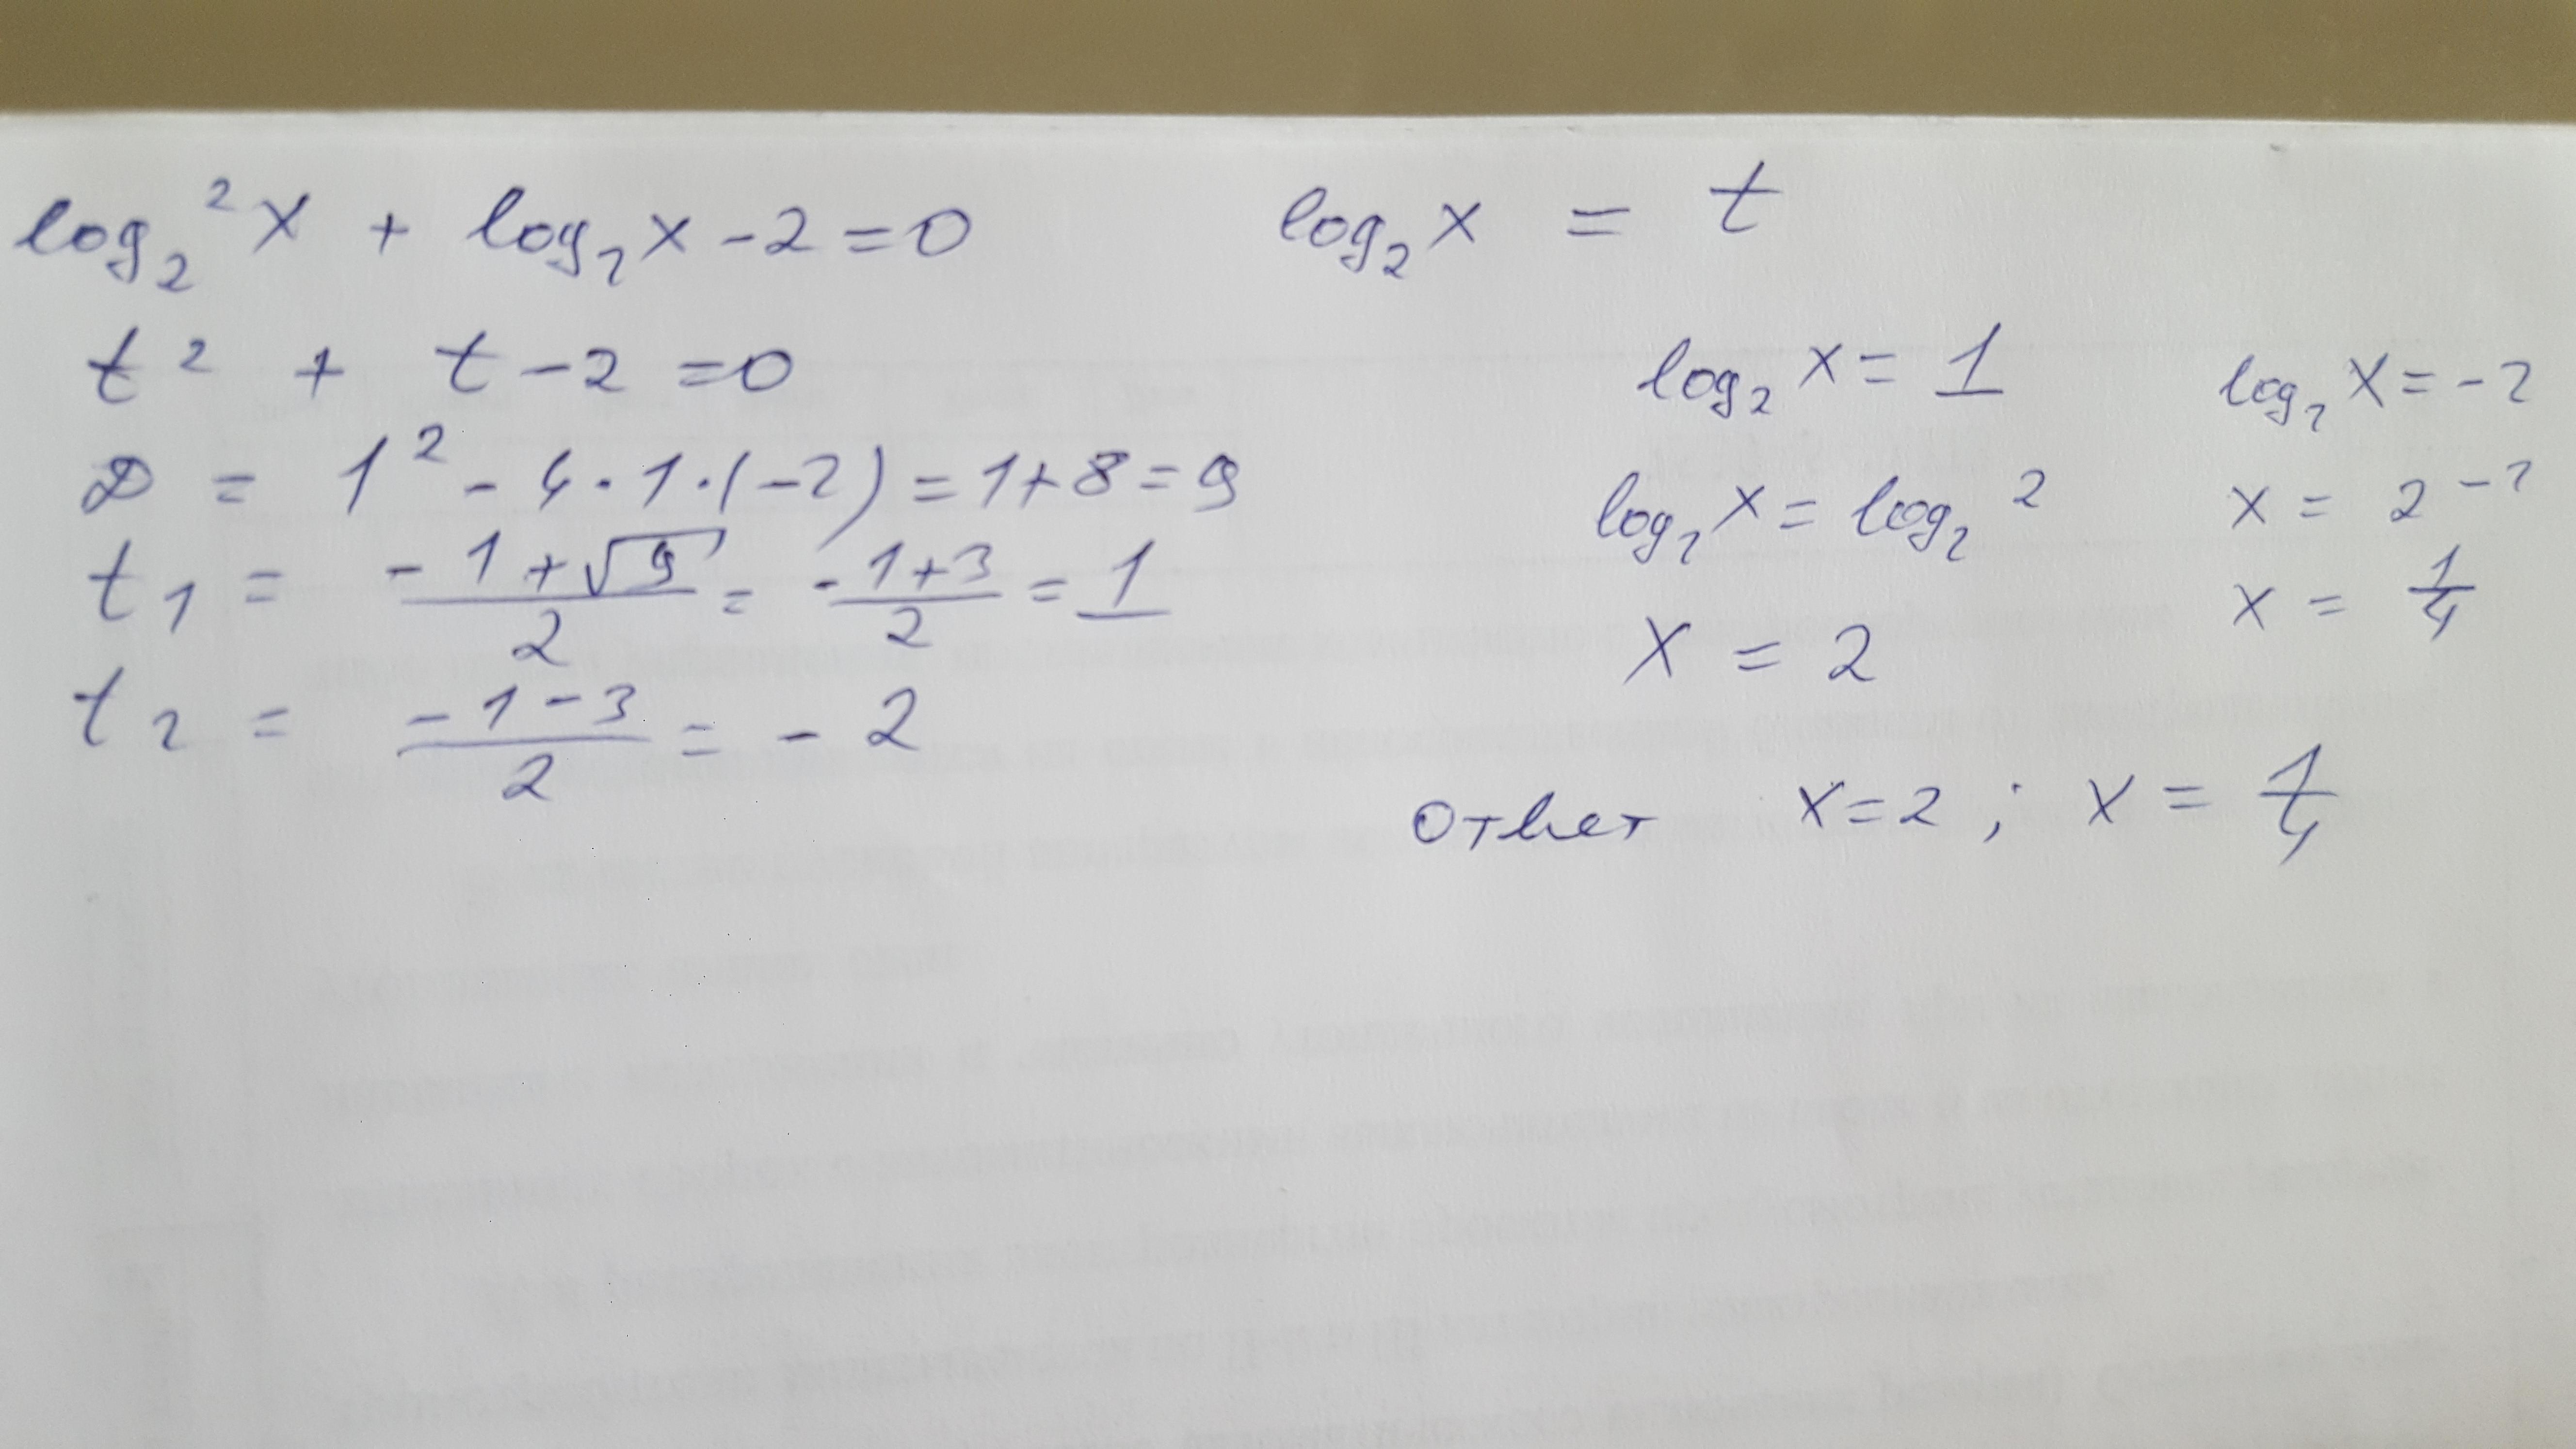 log₂²x + log₂x - 2 = 0
t² + t - 2 = 0
D = 1² - 4 · 1 · (-2) = 1 + 8 = 9
t₁ = (-1 + √9)/2 = (-1 + 3)/2 = 1
t₂ = (-1 - 3)/2 = -2
log₂x = t
log₂x = 1
log₂x = log₂2
x = 2
log₂x = -2
x = 2⁻²
x = 1/4
Ответ x = 2 ; x = 1/4